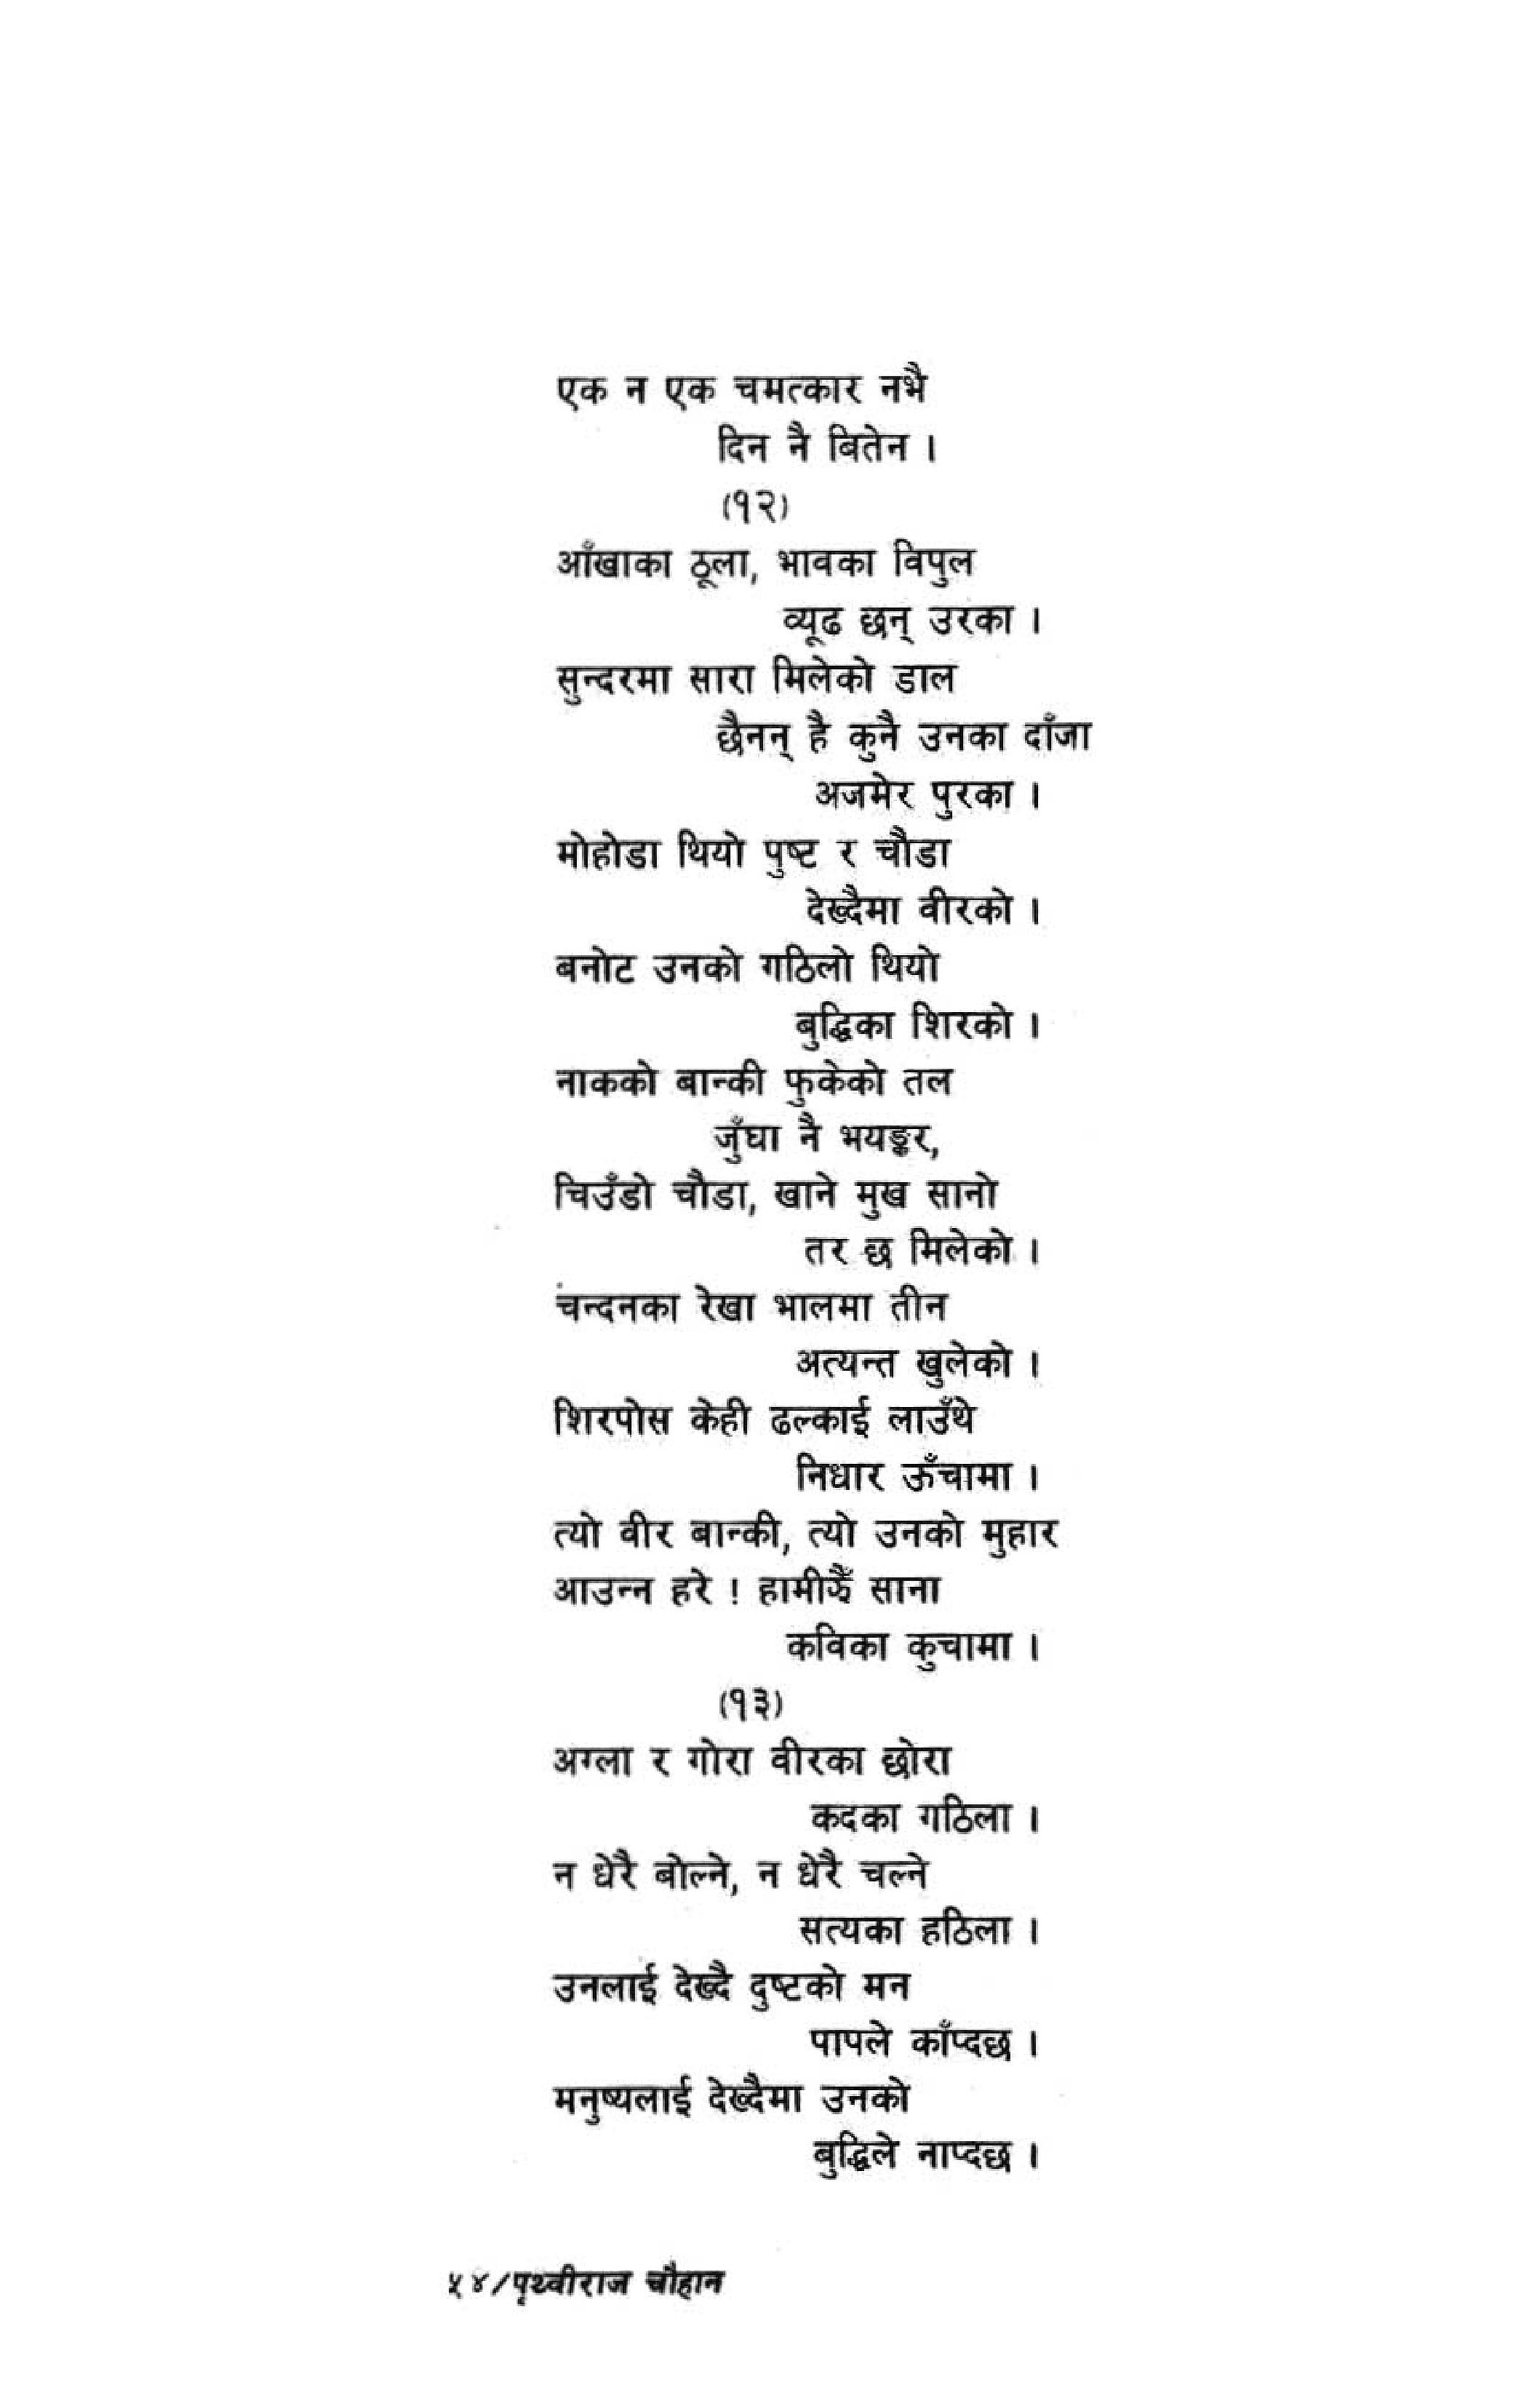 एक न एक चमत्कार नभै
दिन नै बितेन ।
(१२)
आँखाका ठूला, भावका विपुल
व्यूढ छन् उरका ।
सुन्दरमा सारा मिलेको डाल
छैनन् है कुनै उनका दाँजा
अजमेर पुरका ।
मोहोडा थियो पुष्ट र चौडा
देख्दैमा वीरको ।
बनोट उनको गठिलो थियो
बुद्धिका शिरको ।
नाकको बान्की फुकेको तल
जुँघा नै भयङ्कर,
चिउँडो चौडा, खाने मुख सानो
तर छ मिलेको ।
चन्दनका रेखा भालमा तीन
अत्यन्त खुलेको ।
शिरपोस केही ढल्काई लाउँथे
निधार ऊँचामा ।
त्यो वीर बान्की, त्यो उनको मुहार
आउन्न हरे ! हामीझैँ साना
कविका कुचामा ।
(१३)
अग्ला र गोरा वीरका छोरा
कदका गठिला ।
न धेरै बोल्ने, न धेरै चल्ने
सत्यका हठिला ।
उनलाई देख्दै दुष्टको मन
पापले काँप्दछ ।
मनुष्यलाई देख्दैमा उनको
बुद्धिले नाप्दछ ।
५४/पृथ्वीराज चौहान